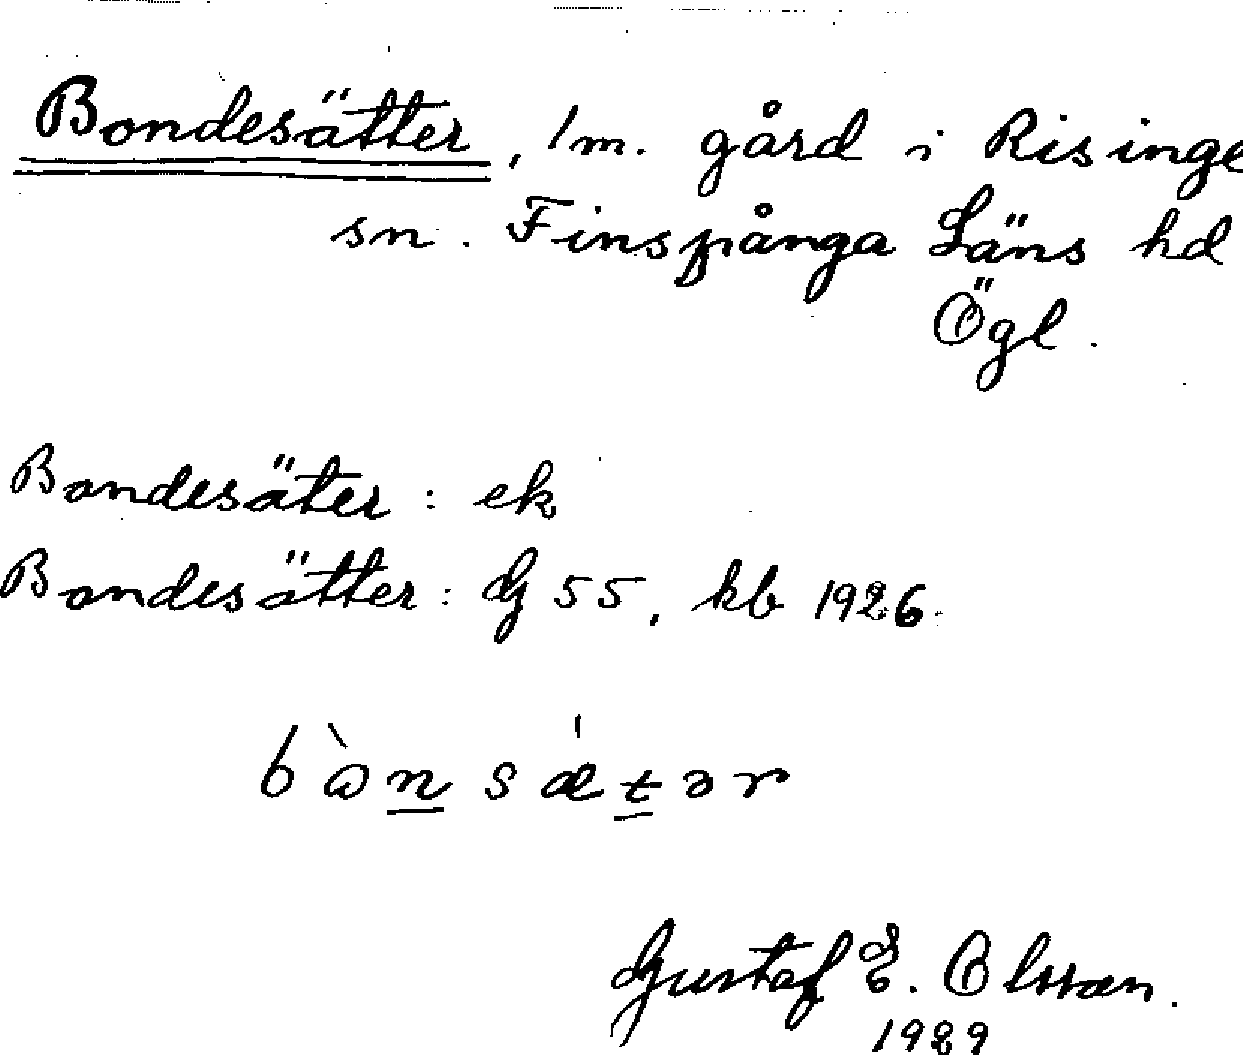 Bondesätter, 1 m. gård i Risinge
sn. Finspånga Läns hd
Ögl.
Bondesäter: ek
Bondesätter: G 55, kb 1926.
bὼn sǽtər
Gustaf E. Olsson.
1929